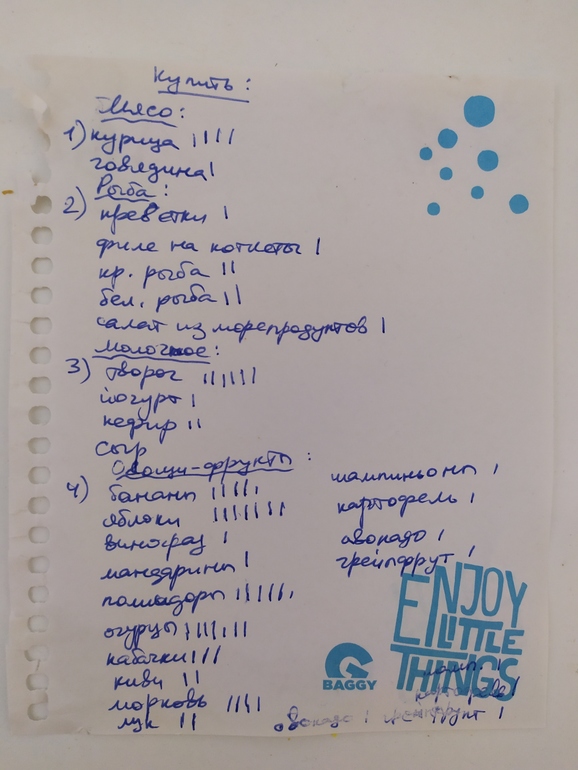 Купить:
Мясо:
1) курица ||||
говядина |
Рыба:
2) креветки |
филе на котлеты |
кр. рыба ||
бел. рыба ||
салат из морепродуктов |
Молочное:
3) творог ||||||
йогурт |
кефир ||
сыр
Овощи-фрукты:
4) бананы |||||
яблоки |||||||
виноград |
мандарины |
помидоры ||||||
огурцы ||||||
кабачки |||
киви ||
морковь ||||
лук ||
шампиньоны |
картофель |
авокадо |
грейпфрут |
ENJOY
LITTLE
THINGS
BAGGY
авокадо |